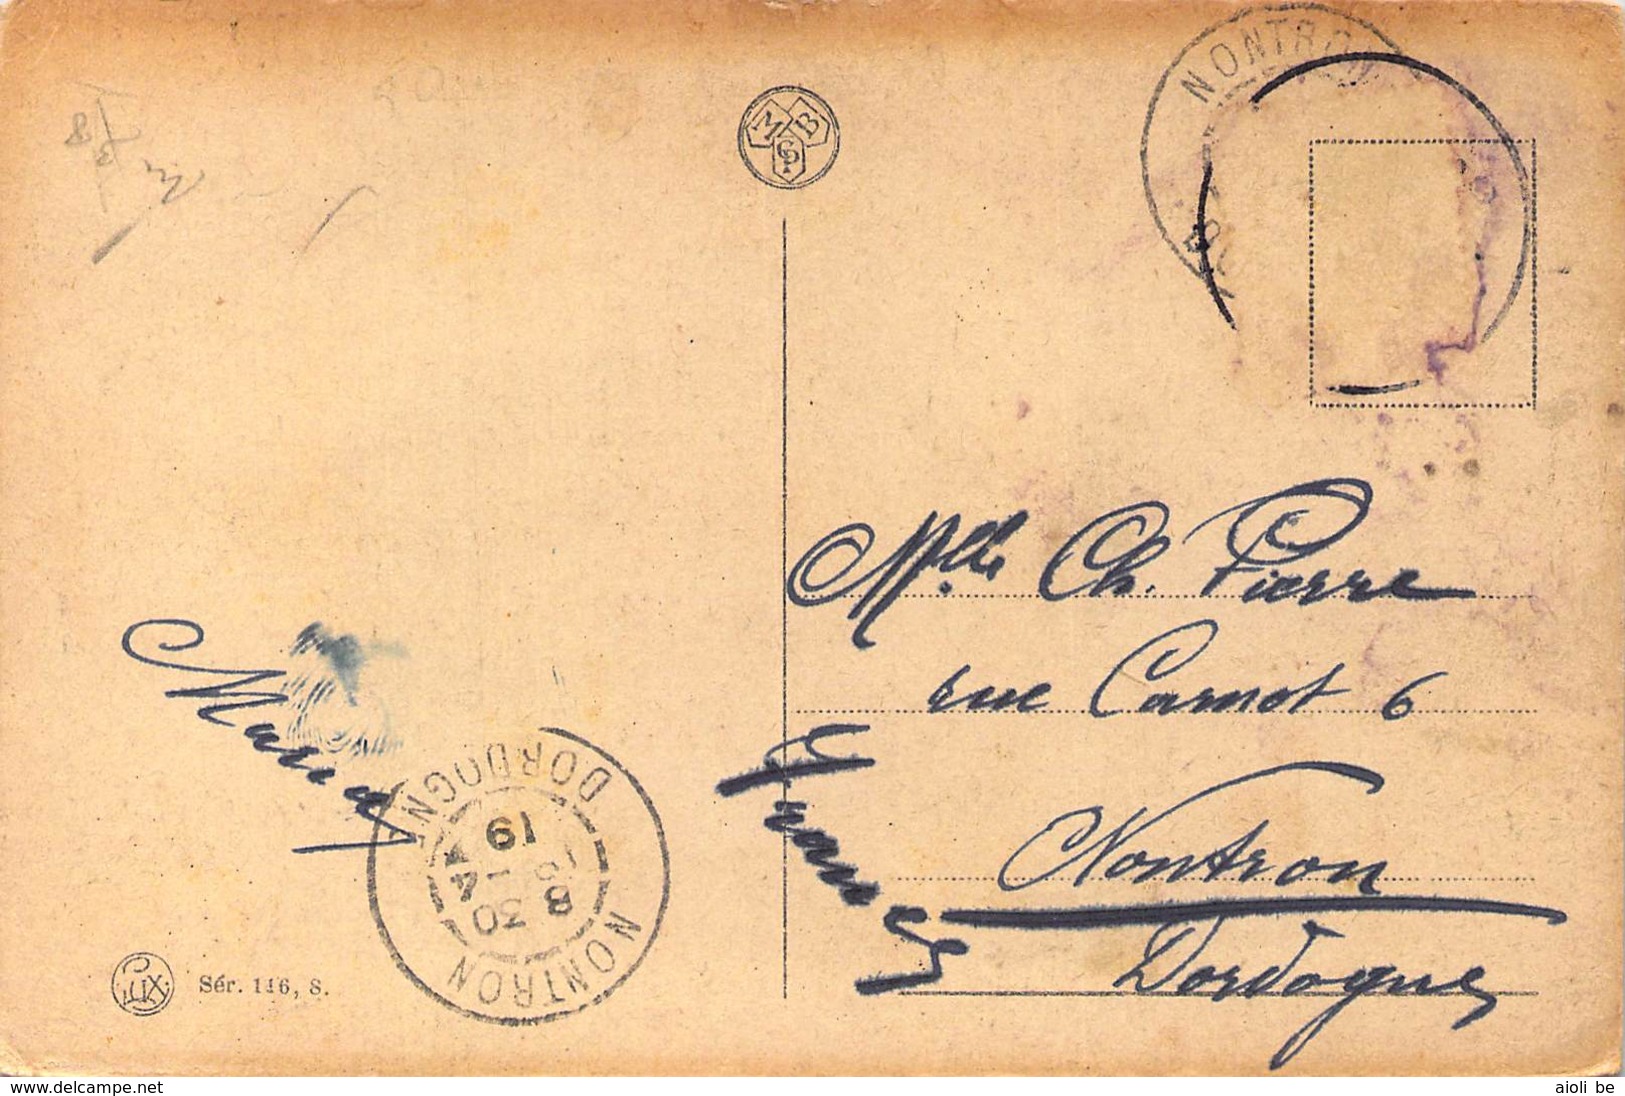 NONTRON
M B
Mlle Ch. Pierre
rue Carnot 6
Nontron
Dordogne
France
NONTRON DORDOGNE
8 30
19
Sér. 116, 8.
www.delcampe.net
aioli be